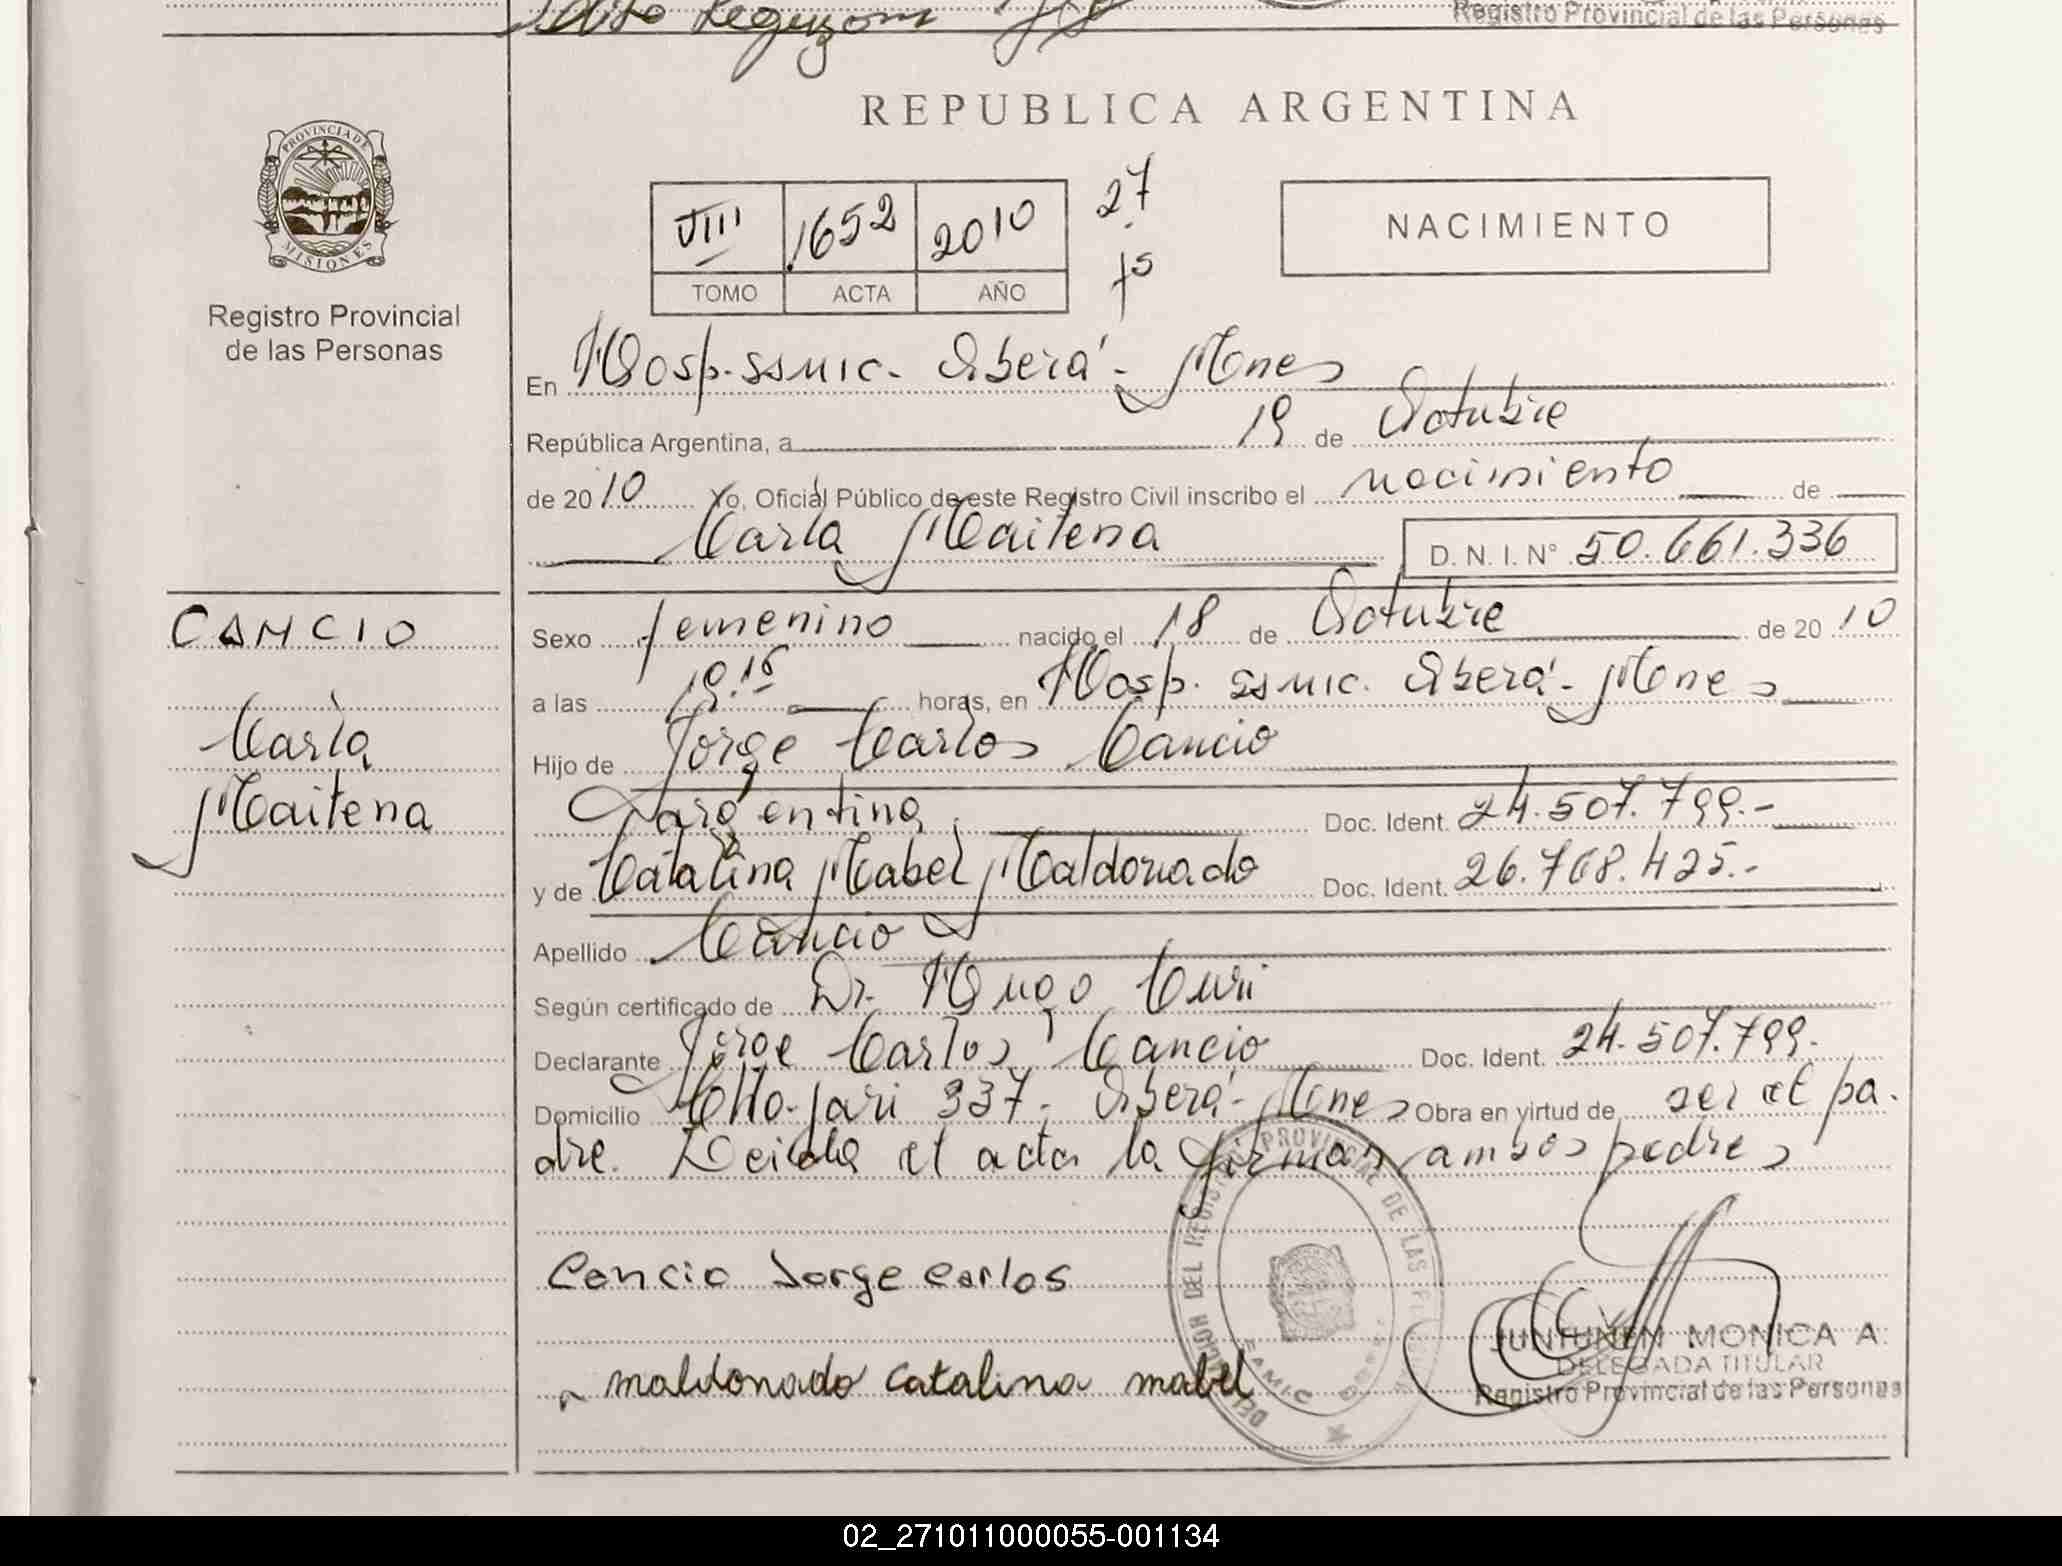 Registro Provincial de las Personas
PROVINCIA DE
MISIONES
Registro Provincial
de las Personas
REPUBLICA ARGENTINA
VIII 1652 2010 27
TOMO ACTA AÑO
NACIMIENTO
En Hosp. SSMIC. Oberá - Mnes
República Argentina, a 19 de Octubre
de 2010 Yo, Oficial Público de este Registro Civil inscribo el nacimiento de
Carla Maitena D. N. I. N° 50.661.336
CANCIO
Carla
Maitena
Sexo femenino nacido el 18 de Octubre de 2010
a las horas, en Hosp. SSMIC. Oberá - Mnes
Hijo de Jorge Carlos Cancio
argentina Doc. Ident. 24.507.799.-
y de Catalina Mabel Maldonado Doc. Ident. 26.768.425.-
Apellido Cancio
Según certificado de Dr. Hugo Curi
Declarante Jorge Carlos Cancio Doc. Ident. 24.507.799.
Domicilio 337- Oberá - Mnes Obra en virtud de ser el pa-
dre. Leida el acta la firman ambos padres
Cancio Jorge Carlos
maldonado catalina mabel
JUNTUNEN MONICA A.
DELEGADA TITULAR
Registro Provincial de las Personas
02_271011000055-001134